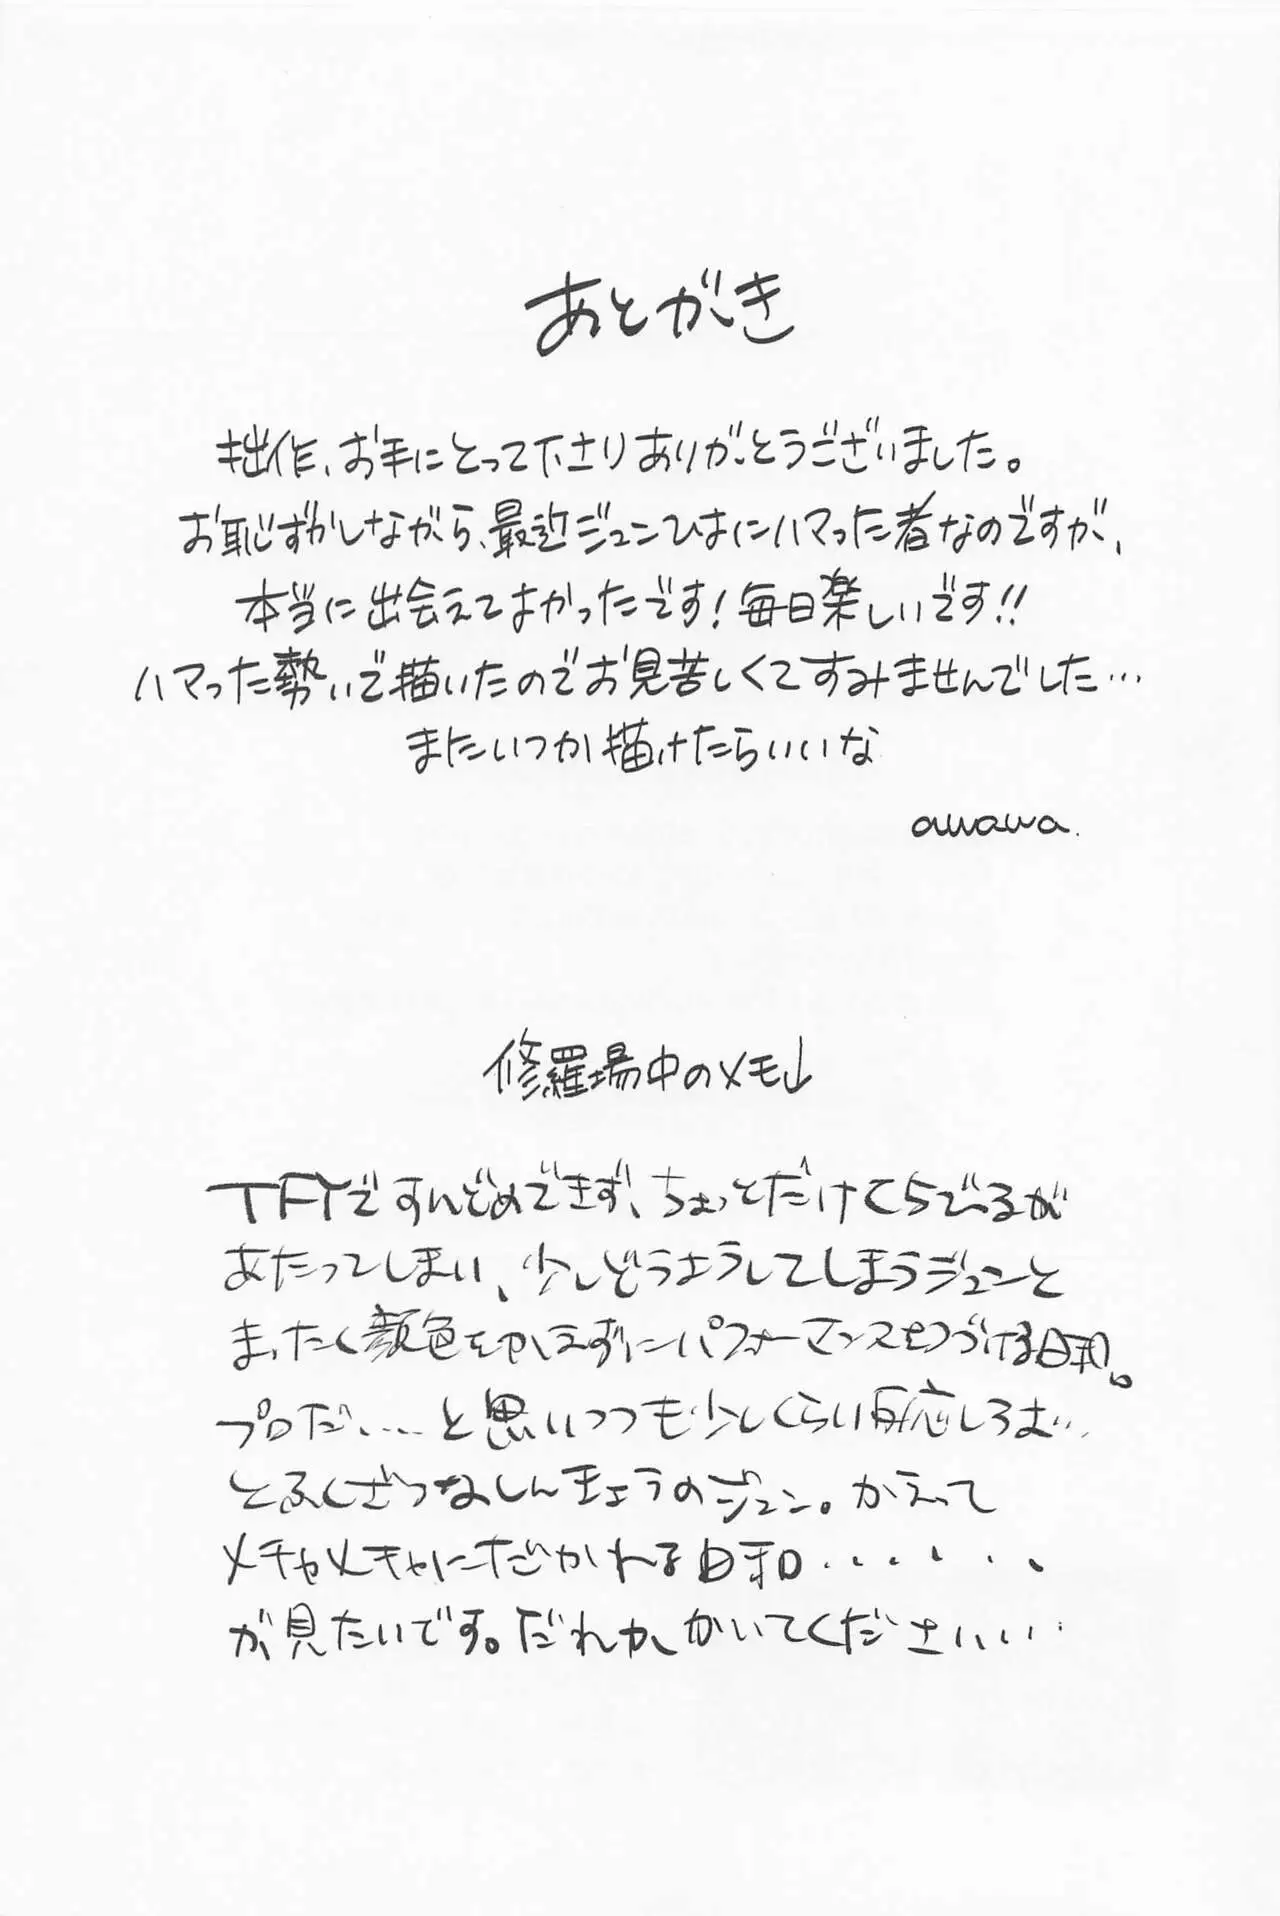 あとがき
拙作、お手にとって下さりありがとうございました。
お恥ずかしながら、最近ジュンひよにハマった者なのですが、
本当に出会えてよかったです!毎日楽しいです!!
ハマった勢いで描いたのでお見苦しくてすみませんでした…
またいつか描けたらいいな
awawa.
修羅場中のメモ↓
TFYですんどめできず、ちょっとだけくちびるが
あたってしまい、少しどうようしてしまうジュンと
まったく顔色をかえずにパフォーマンスをつづける日和。
プロだ……と思いつつも少しくらい反応しろよ…
とふくざつなしんきょうのジュン。かえって
メチャメチャにだかれる日和・・・・・・
が見たいです。だれか、かいてくださいい…